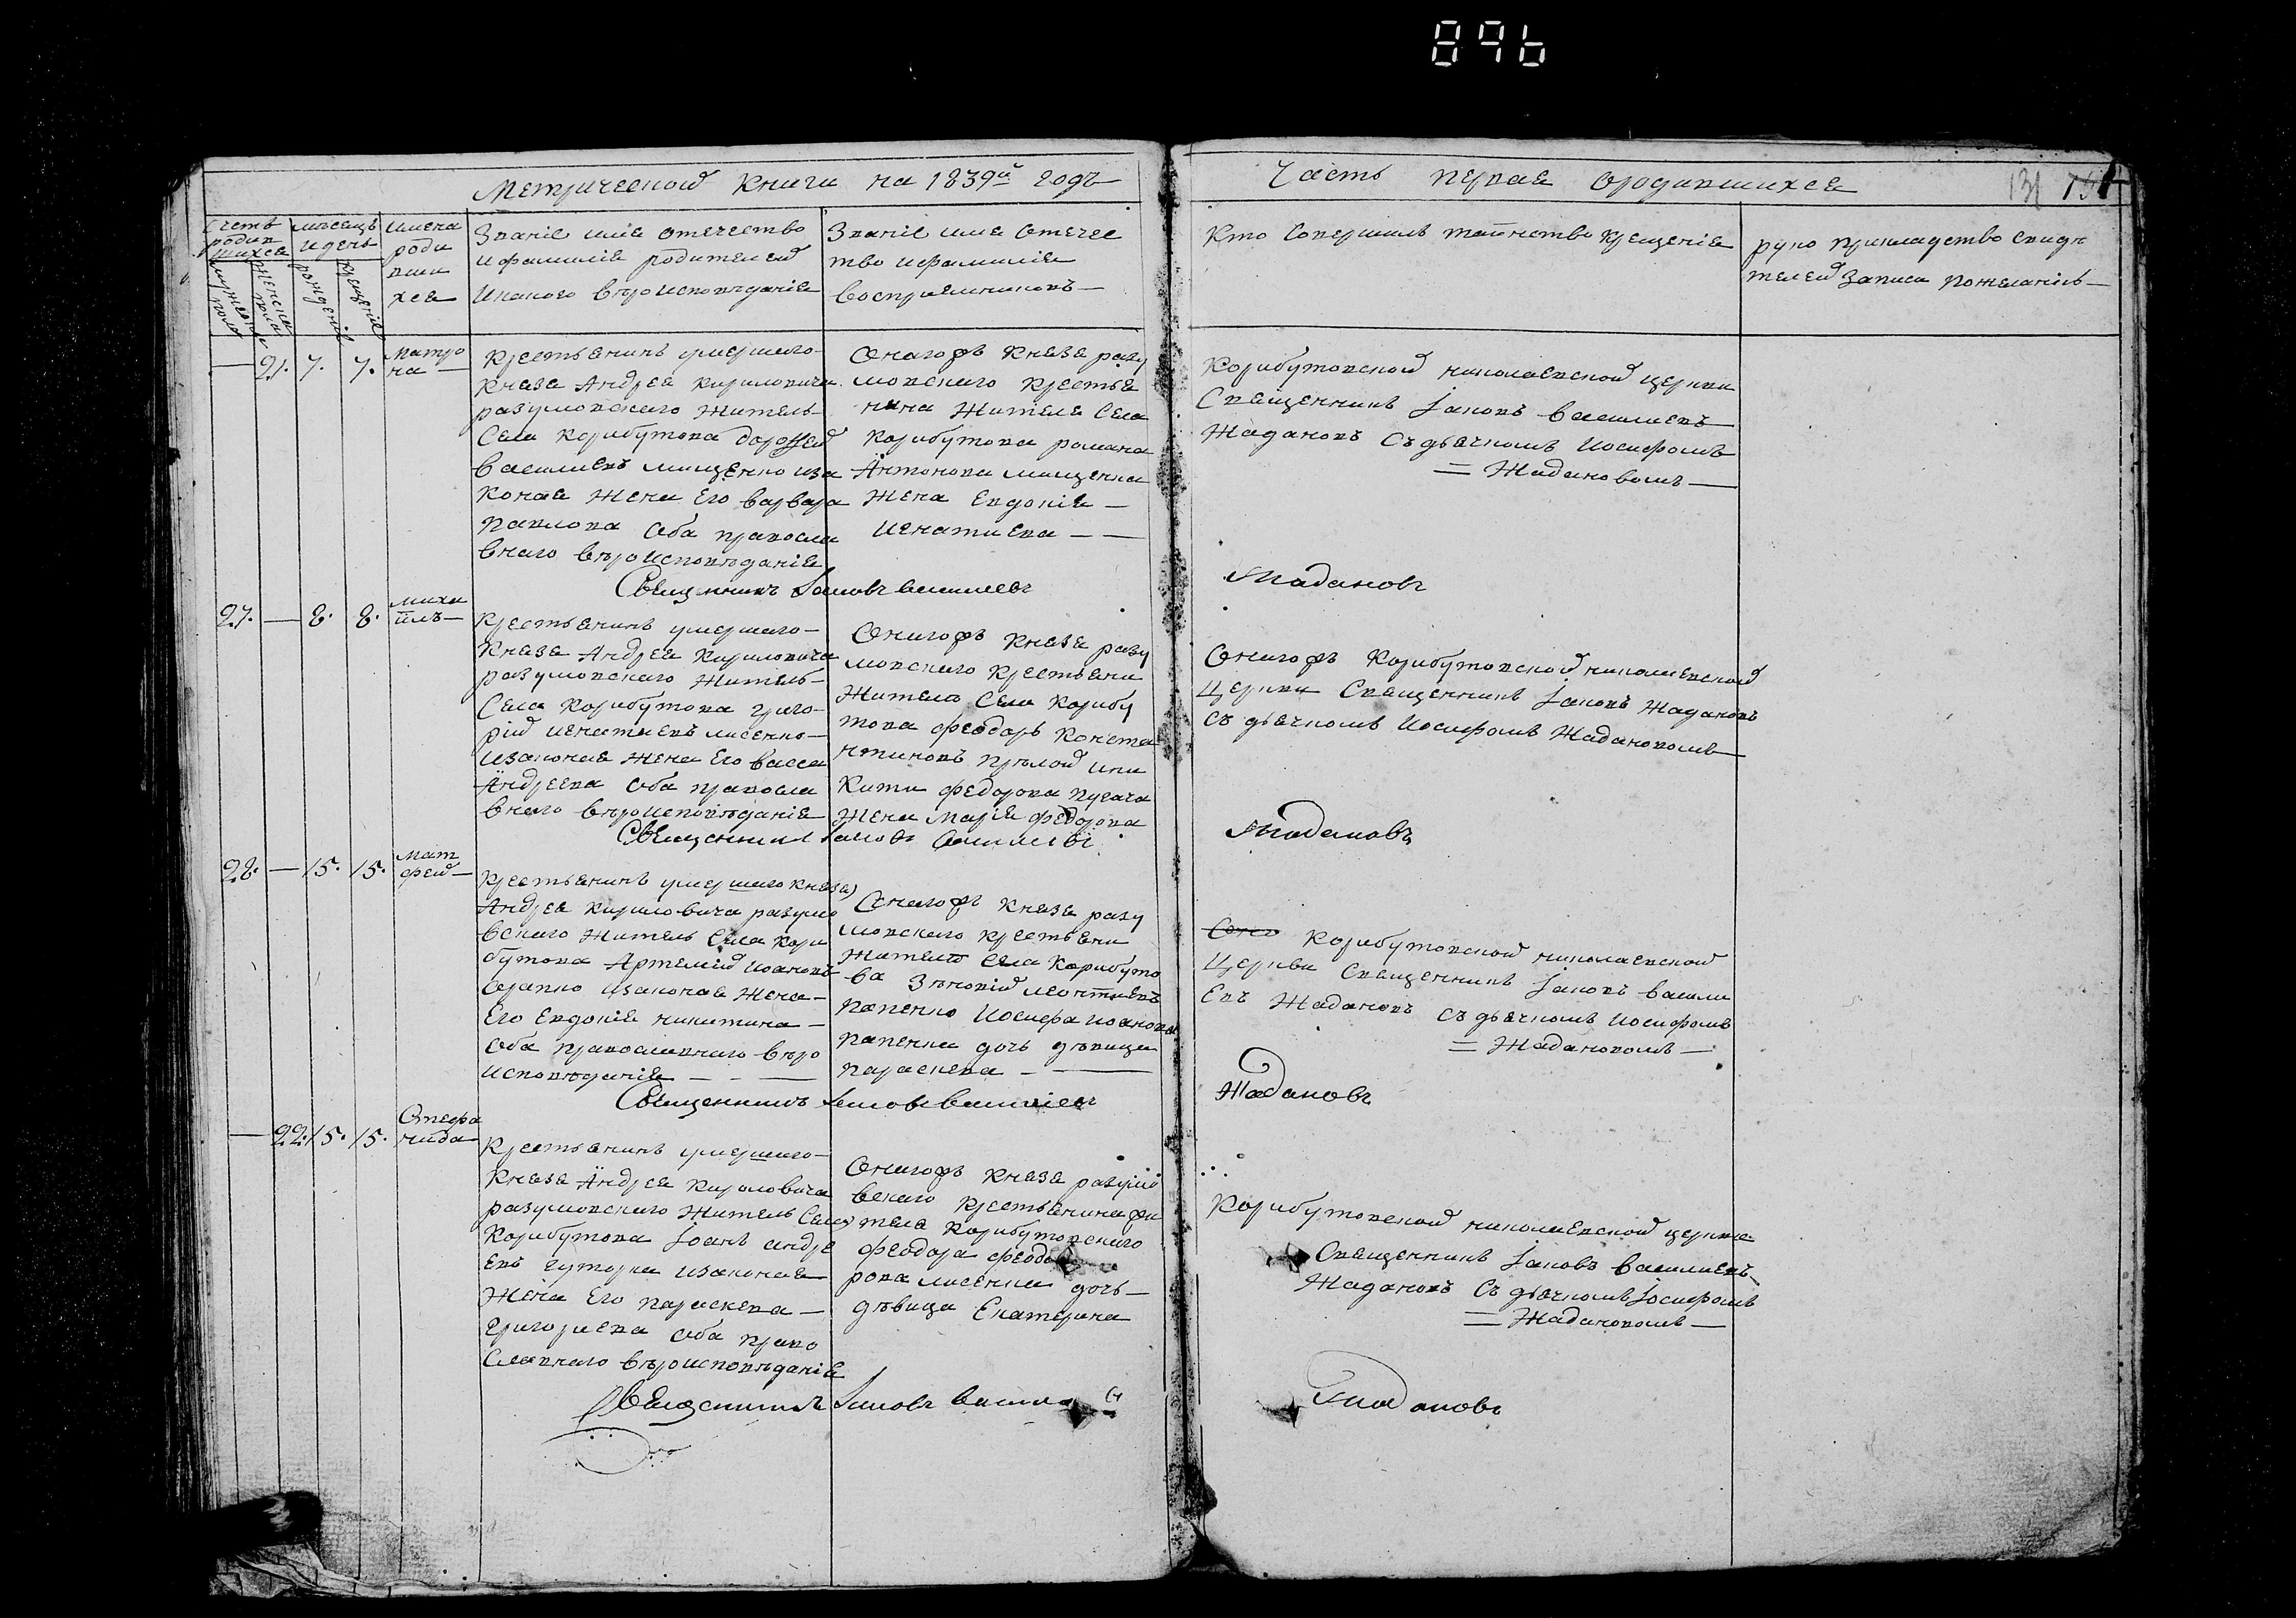 896
Метрической книги на 1839й годъ
Часть первая ородившихся
131
Счетъ родив шихся
мужеска пола
женска пола
мѣсяцъ и день
рожденія
крещенія
имена роди вши хся
Званіе имя отечество
и фамилія родителей
и какого вѣроисповѣданія
Званіе имя отечес
тво и фамилія
воспріемниковъ
Кто совершилъ таинство крещенія
руко прикладство свидѣ
телей записи пожеланію
— 21. 7. 7. Матро
на
Крестьянинъ умершаго
Князя Андрея Кириловича
разумовскаго житель
села Корибутова дорофей
василиевъ мищенко иза
коная жена его варвара
павлова оба правосла
внаго вѣроисповѣданія
Онагожъ Князя разу
мовскаго крестья
нина жителя села
Корибутова романа
Антонова мищенка
жена евдокія
игнатиева
Корибутовской николаевской церкви
Священникъ Іаковъ василиевъ
Жадановъ съ дьячкомъ Иосифомъ
= Жадановомъ
Священникъ Іаковъ василиевъ
Жадановъ
27. — 8. 8. миха
илъ
Крестьянинъ умершаго
Князя Андрея Кириловича
разумовскаго житель
села Корибутова григо
рій игнатиевъ лисенко
изаконая жена его васса
Андреева оба правосла
внаго вѣроисповѣданія
Онагожъ Князя разу
мовскаго крестьяни
житель села Корибу
това феодоръ Конста
нтиновъ
Кити федорова пугача
жена марія федорова
Онагожъ Корибутовской николаевской
церкви Священникъ Іаковъ Жадановъ
съ дьячкомъ Иосифомъ Жадановомъ
Священникъ Іаковъ василиевъ
Жадановъ
28. — 15. 15. мат
фей
Крестьянинъ умершаго князя
Андрея Кириловича разумо
вскаго житель села Кори
бутова Артемій иоановъ
изаконая жена
его евдокія никитина
оба православнаго вѣро
исповѣданія
Онагожъ Князя разу
мовскаго крестьяни
житель села Корибуто
ва Зѣновій леонтиевъ
папенко Иосифа иоанова
папенка дочь дѣвица
параскева
Корибутовской николаевской
церкви Священникъ Іаковъ васили
евъ Жадановъ съ дьячкомъ Иосифомъ
= Жадановомъ
Священникъ Іаковъ василиевъ
Жадановъ
— 22. 15. 15. Стефа
нида
Крестьянинъ умершаго
Князя Андрея Кириловича
разумовскаго житель села
Корибутова Іоанъ андре
евъ гуторка изаконая
жена его параскева
григориева оба право
славнаго вѣроисповѣданія
Онагожъ Князя разумо
вскаго крестьянина жи
теля Корибутовскаго
феодора феодо
рова лисенка дочь
дѣвица Екатерина
Корибутовской николаевской церкви
Священникъ Іаковъ василиевъ
Жадановъ съ дьячкомъ Іосифомъ
= Жадановомъ
Священникъ Іаковъ
Жадановъ